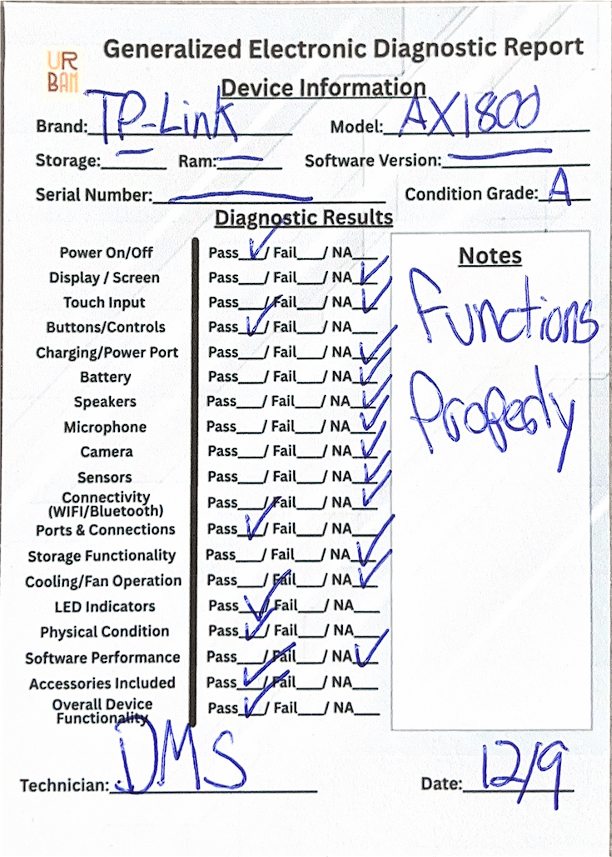 UR
BAN
Generalized Electronic Diagnostic Report
Device Information
Brand: TP-Link Model: AX1800
Storage:____ Ram:____ Software Version:____
Serial Number:____ Condition Grade: A
Diagnostic Results
Power On/Off Pass ✓/ Fail___/ NA___
Display / Screen Pass___/ Fail___/ NA ✓
Touch Input Pass___/ Fail___/ NA ✓
Buttons/Controls Pass ✓/ Fail___/ NA___
Charging/Power Port Pass___/ Fail___/ NA ✓
Battery Pass___/ Fail___/ NA ✓
Speakers Pass___/ Fail___/ NA ✓
Microphone Pass___/ Fail___/ NA ✓
Camera Pass___/ Fail___/ NA ✓
Sensors Pass___/ Fail___/ NA ✓
Connectivity
(WIFI/Bluetooth) Pass___/ Fail___/ NA ✓
Ports & Connections Pass ✓/ Fail___/ NA___
Storage Functionality Pass___/ Fail___/ NA ✓
Cooling/Fan Operation Pass___/ Fail___/ NA ✓
LED Indicators Pass ✓/ Fail___/ NA___
Physical Condition Pass ✓/ Fail___/ NA___
Software Performance Pass___/ Fail___/ NA ✓
Accessories Included Pass ✓/ Fail___/ NA___
Overall Device
Functionality Pass ✓/ Fail___/ NA___
Notes
Functions
Properly
Technician: DMS Date: 12/9